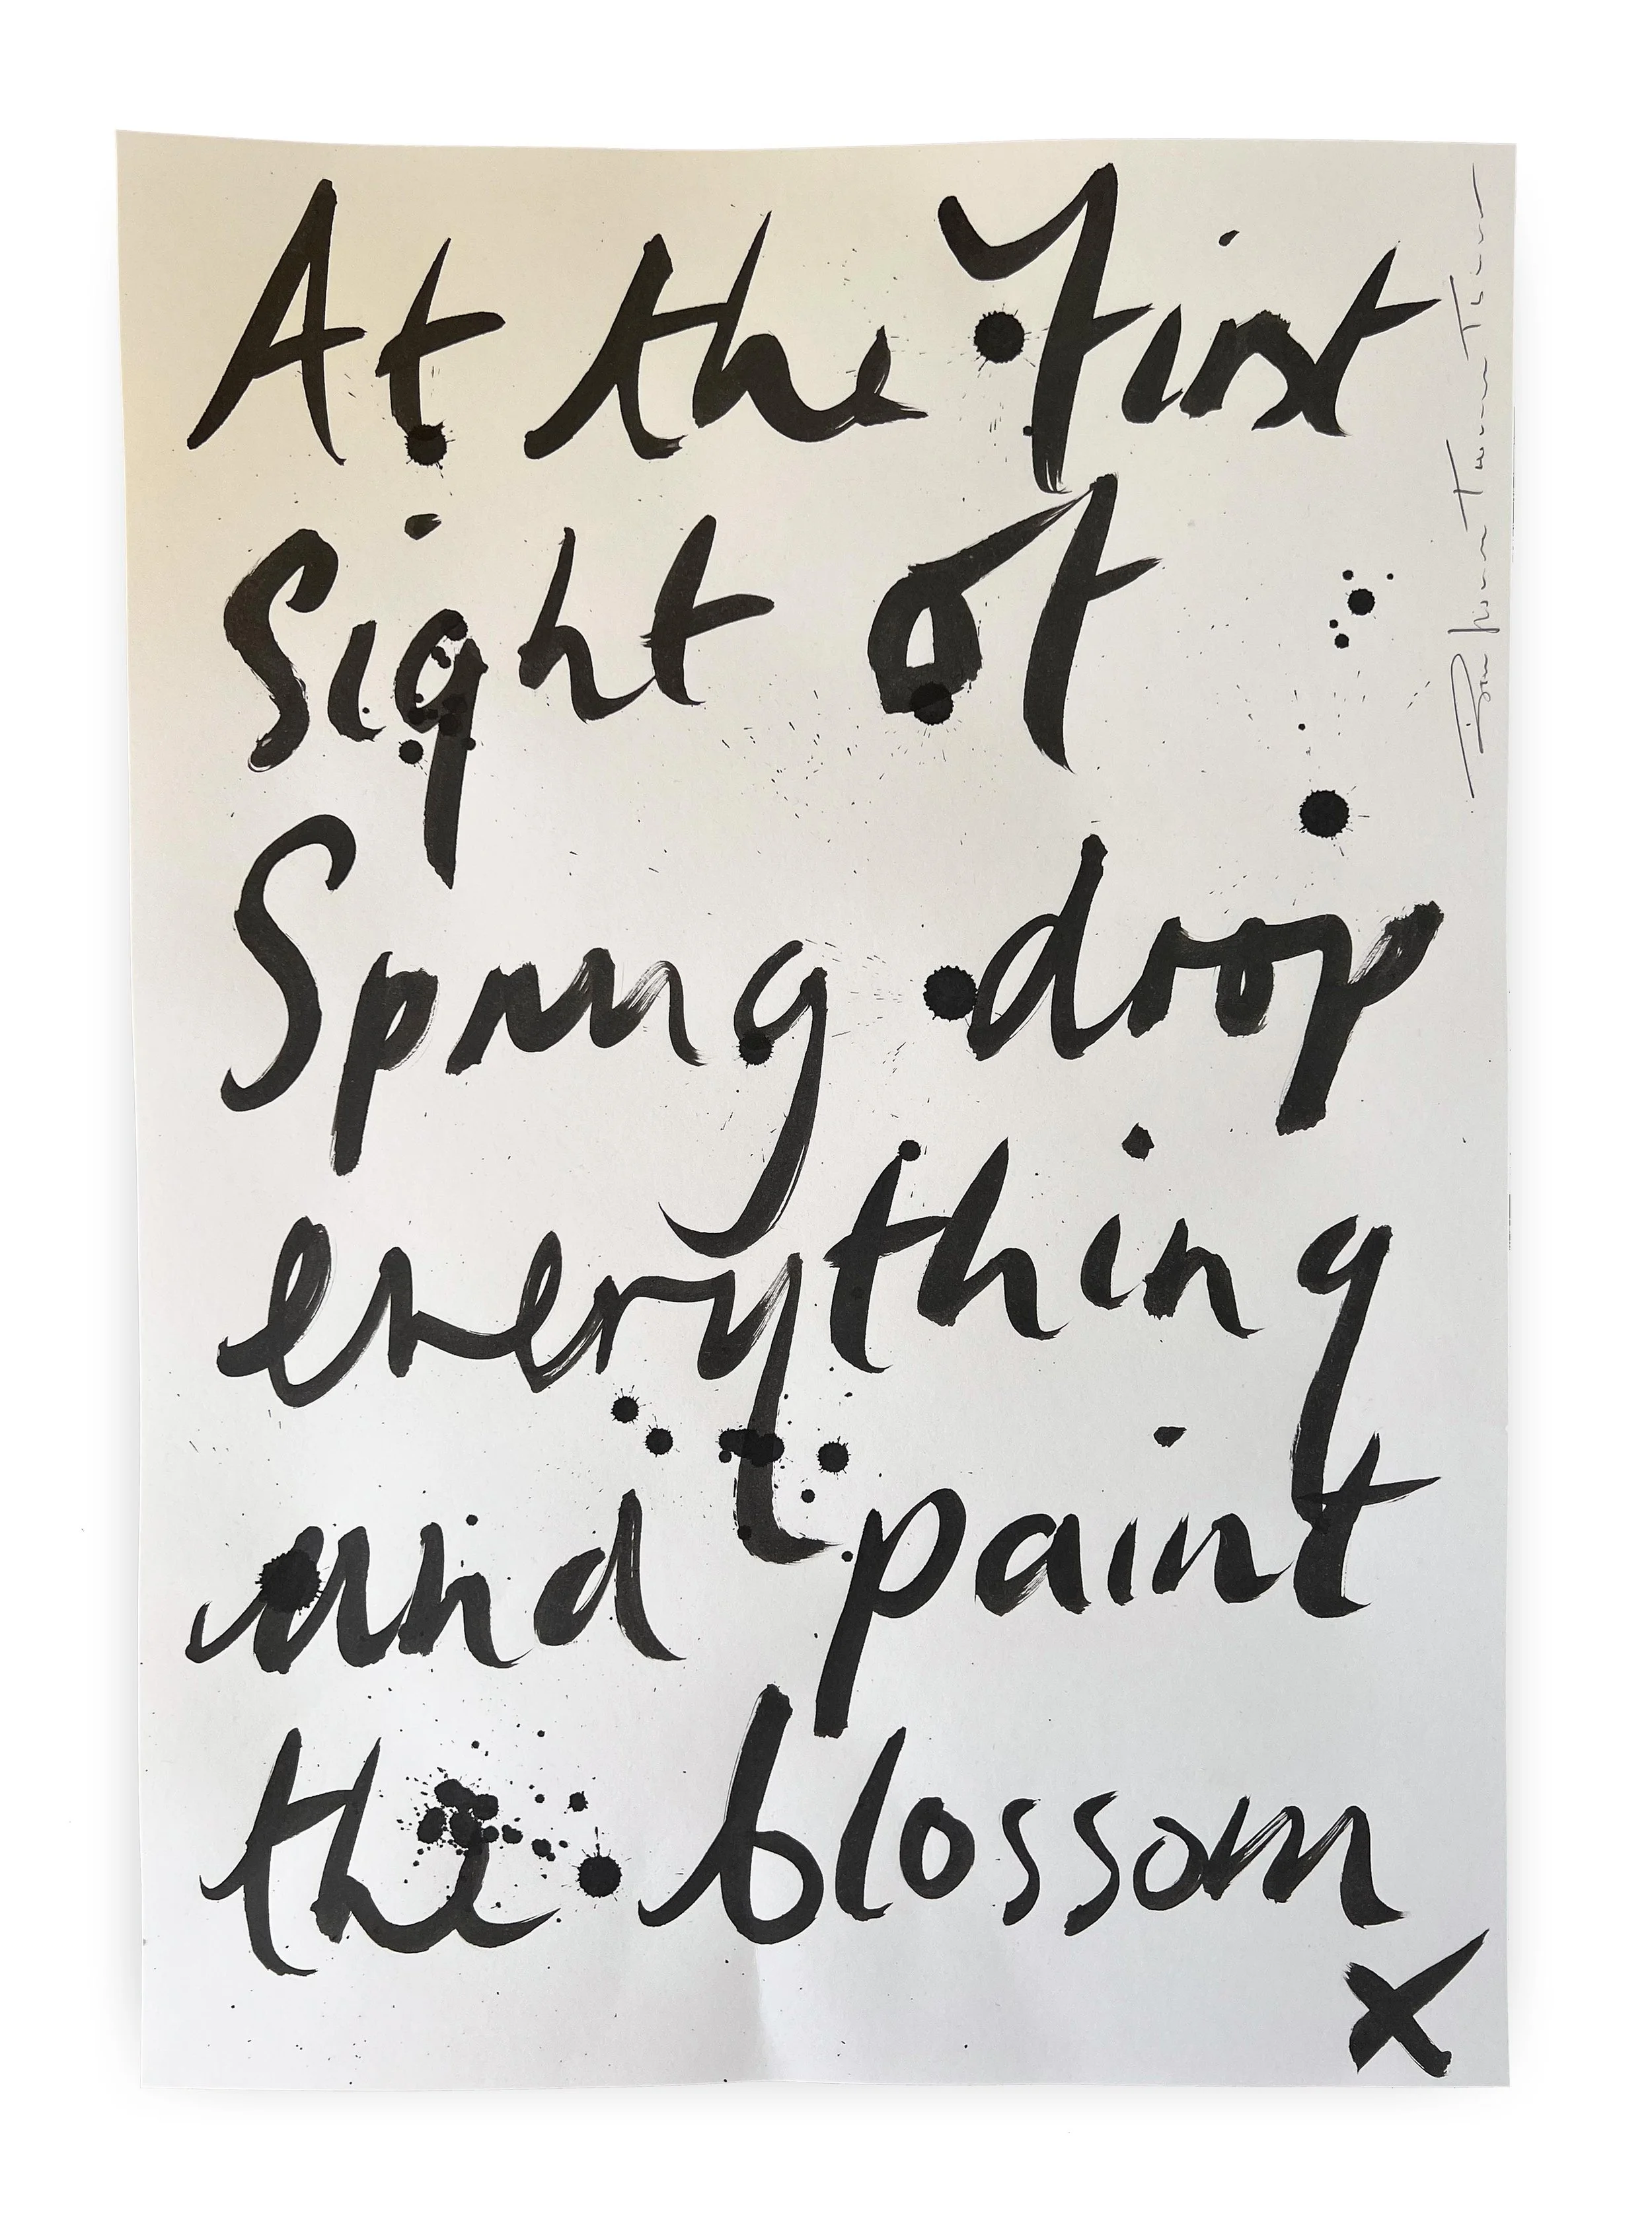 At the first
sight of
Spring drop
everything
and paint
the blossom
x